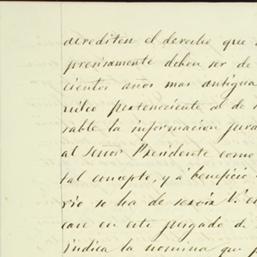 acrediten el derecho que
precisamente deben ser de
cientos años mas antigua
perteneciente al de
rable la informacion
al señor Presidente como
tal concepto, y á beneficio
rio se ha de servir V.
en este juzgado de
indica la nomina que